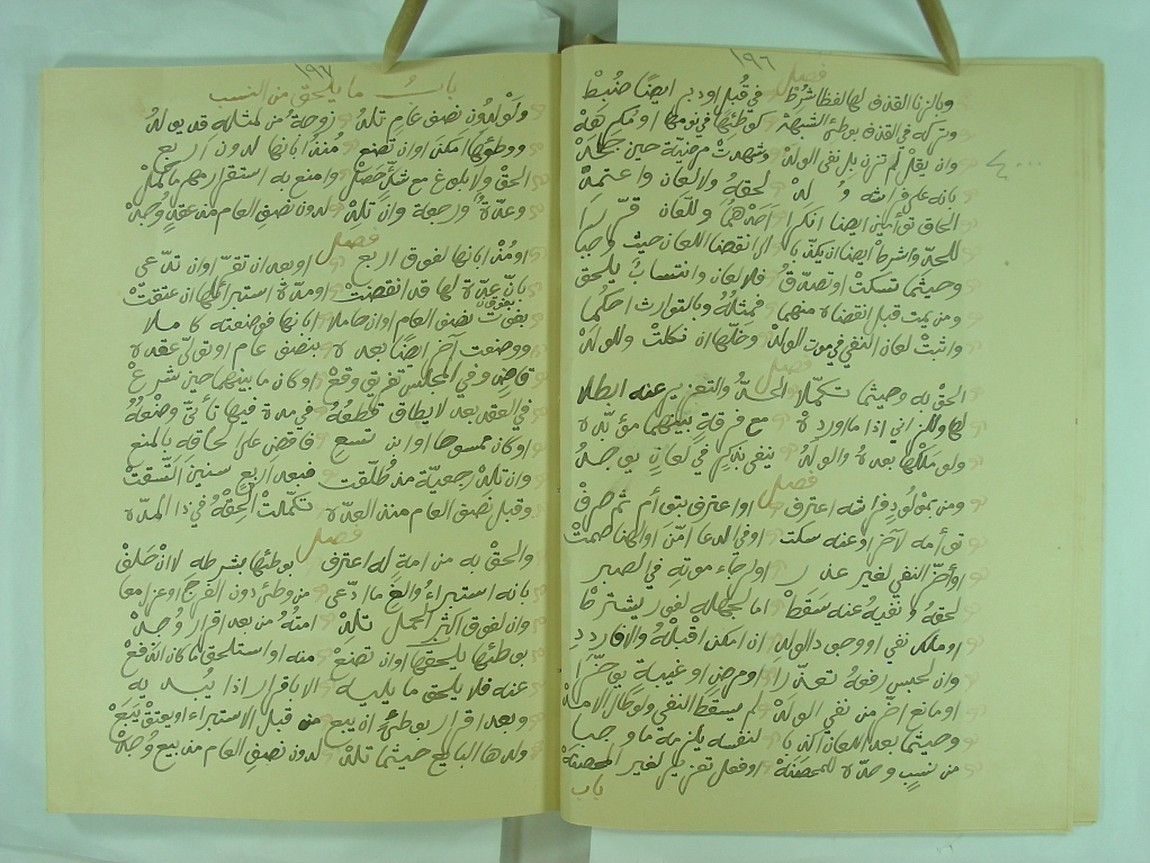 ١٩٦
فصل
وبالزنا القذف لها لفظا شرط في قبل او دبر ايضا ضبط
وتركه في القذف بوطئ الشبهة كوطئها في نومها او مكرهة
وان يقل لم تزن بل نفى الولد وشهدت مرضية حين جحد
بانه على فراشه ولد لحقه ولا لعان واعتمد
الحاق توأمين ايضا انكرا احدهما وللعان قررا
للحد واشرط ايضا ان يكذبا ان انقضا اللعان حيث وجبا
وحيثما تسكت او تصدق فلا لعان وانتساب يلحق
ومن يمت قبل انقضاه منهما فمثله وبالتوارث احكما
واثبت لعان النفي في موت الولد وخلها ان نكلت وللولد
فصل
الحق به وحيثما تكملا الحد والتعزير عنه ابطلا
لها وللزاني اذا ما اورده مع فرقة بينهما مؤبده
ولو ملكها بعده والولد ينفى بذكر في لعان يوجد
فصل
ومن بمولود فراشه اعترف او اعترف بتوأم ثم صرف
توأمه لآخر او عنه سكت او في الدعا امن او الهنا صمت
او أخر النفي لغير عذر او لرجاء موته في الصبر
لحقه ونفيه عنه سقط اما لجهله لفور يشترط
او ملك نفي او وجود الولد ان امكن اقبله والا فاردد
وان لحبس رفعه تعذرا او مرض او غيبة يؤخرا
او مانع اخر من نفي الولد لم يسقط النفي ولو طال الامد
وحيثما بعد اللعان اكذبا لنفسه يلزمه ما وجبا
من نسب وحده للمحصنة او فعل تعزير لغير المحصنة
باب
١٩٧
باب ما يلحق من النسب
ولو لدون نصف عام تلد زوجة من لمثله قد يولد
ووطؤها امكن او ان تضع منذ ابانها لدون اربع
الحق ولا بلوغ مع شك حصل وامنع به استقرار مهر ما كمل
وعدة ورجعة وان تلد لدون نصف العام من عقد وجد
فصل
او منذ ابانها لفوق اربع او بعد ان تقر او ان تدعى
بان عدة لها قد انقضت او مدة استبرائها ان عتقت
بفوت نصف العام او ان حاملا ابانها فوضعته كاملا
ووضعت آخر ايضا بعده بنصف عام او تولى عقده
قاض وفي المجلس تفريق وقع او كان ما بينهما حين شرع
في العقد بعد لا يطاق قطعه في مدة فيها تأتى وضعه
او كان ممسوحا او ابن تسع فاقض على لحاقه بالمنع
وان تلد رجعية مذ طلقت فبعد اربع سنين اتسقت
وقبل نصف العام منذ العدة تكملت الحقه في ذا المدة
فصل
والحق به من امة له اعترف بوطئها بشرطه لا ان حلف
بانه استبراء والغ ما ادعى من وطئ دون الفرج او عزل معا
وان لفوق اكثر الحمل تلد امته من بعد اقرار وجد
بوطئها يلحقها او ان تضع منه او استلحق ما كان اندفع
عنه فلا يلحق ما يليه الا باقرار اذا يبديه
وبعد اقرار بوطئه ان يبع من قبل الاستبراء او يعتق يتبع
ولدها البايع حيثما تلد لدون نصف العام من بيع وجد